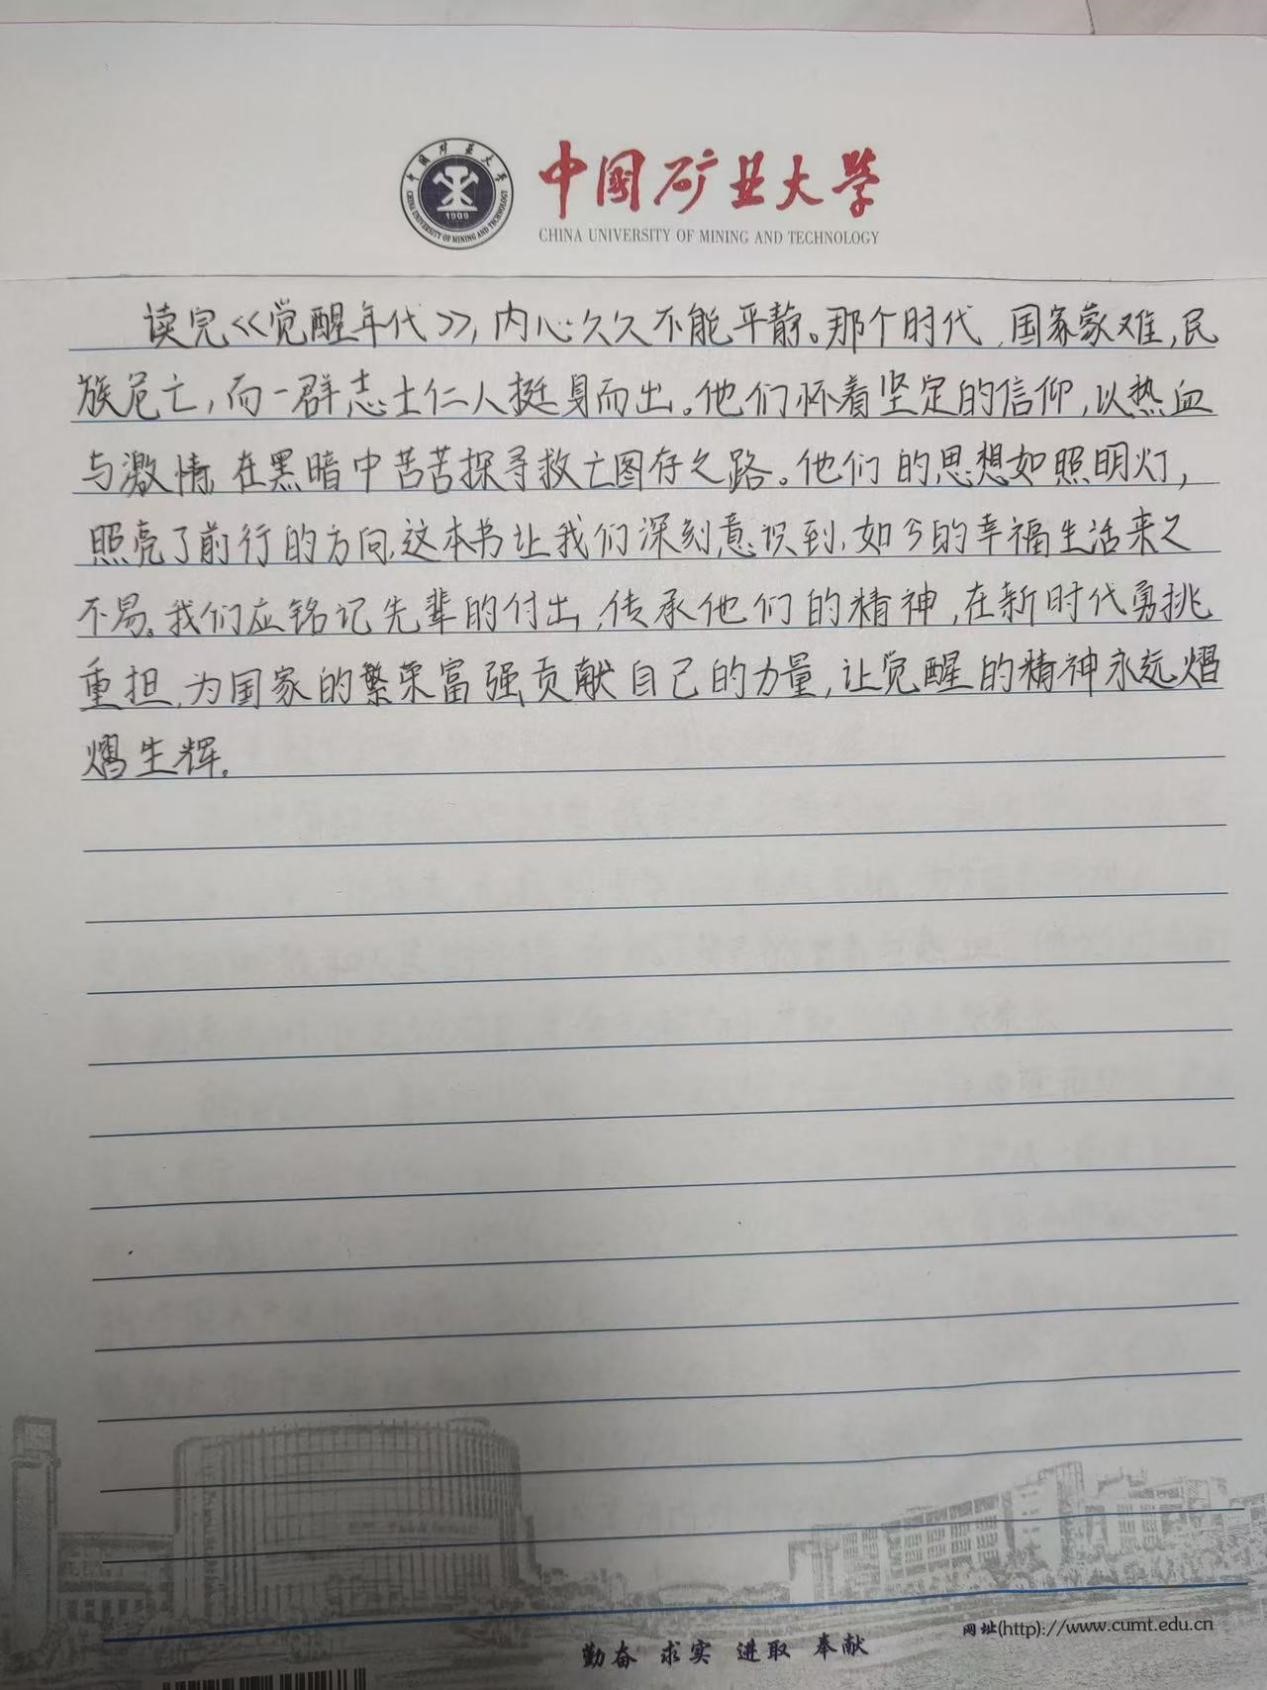 中国矿业大学
CHINA UNIVERSITY OF MINING AND TECHNOLOGY
中国矿业大学
CHINA UNIVERSITY OF MINING AND TECHNOLOGY
1909
读完《觉醒年代》,内心久久不能平静。那个时代,国家蒙难,民
族危亡,而一群志士仁人挺身而出。他们怀着坚定的信仰,以热血
与激情,在黑暗中苦苦探寻救亡图存之路。他们的思想如照明灯,
照亮了前行的方向,这本书让我们深刻意识到,如今的幸福生活来之
不易。我们应铭记先辈的付出,传承他们的精神,在新时代勇挑
重担,为国家的繁荣富强贡献自己的力量,让觉醒的精神永远熠
熠生辉。
网址(http)://www.cumt.edu.cn
勤奋 求实 进取 奉献